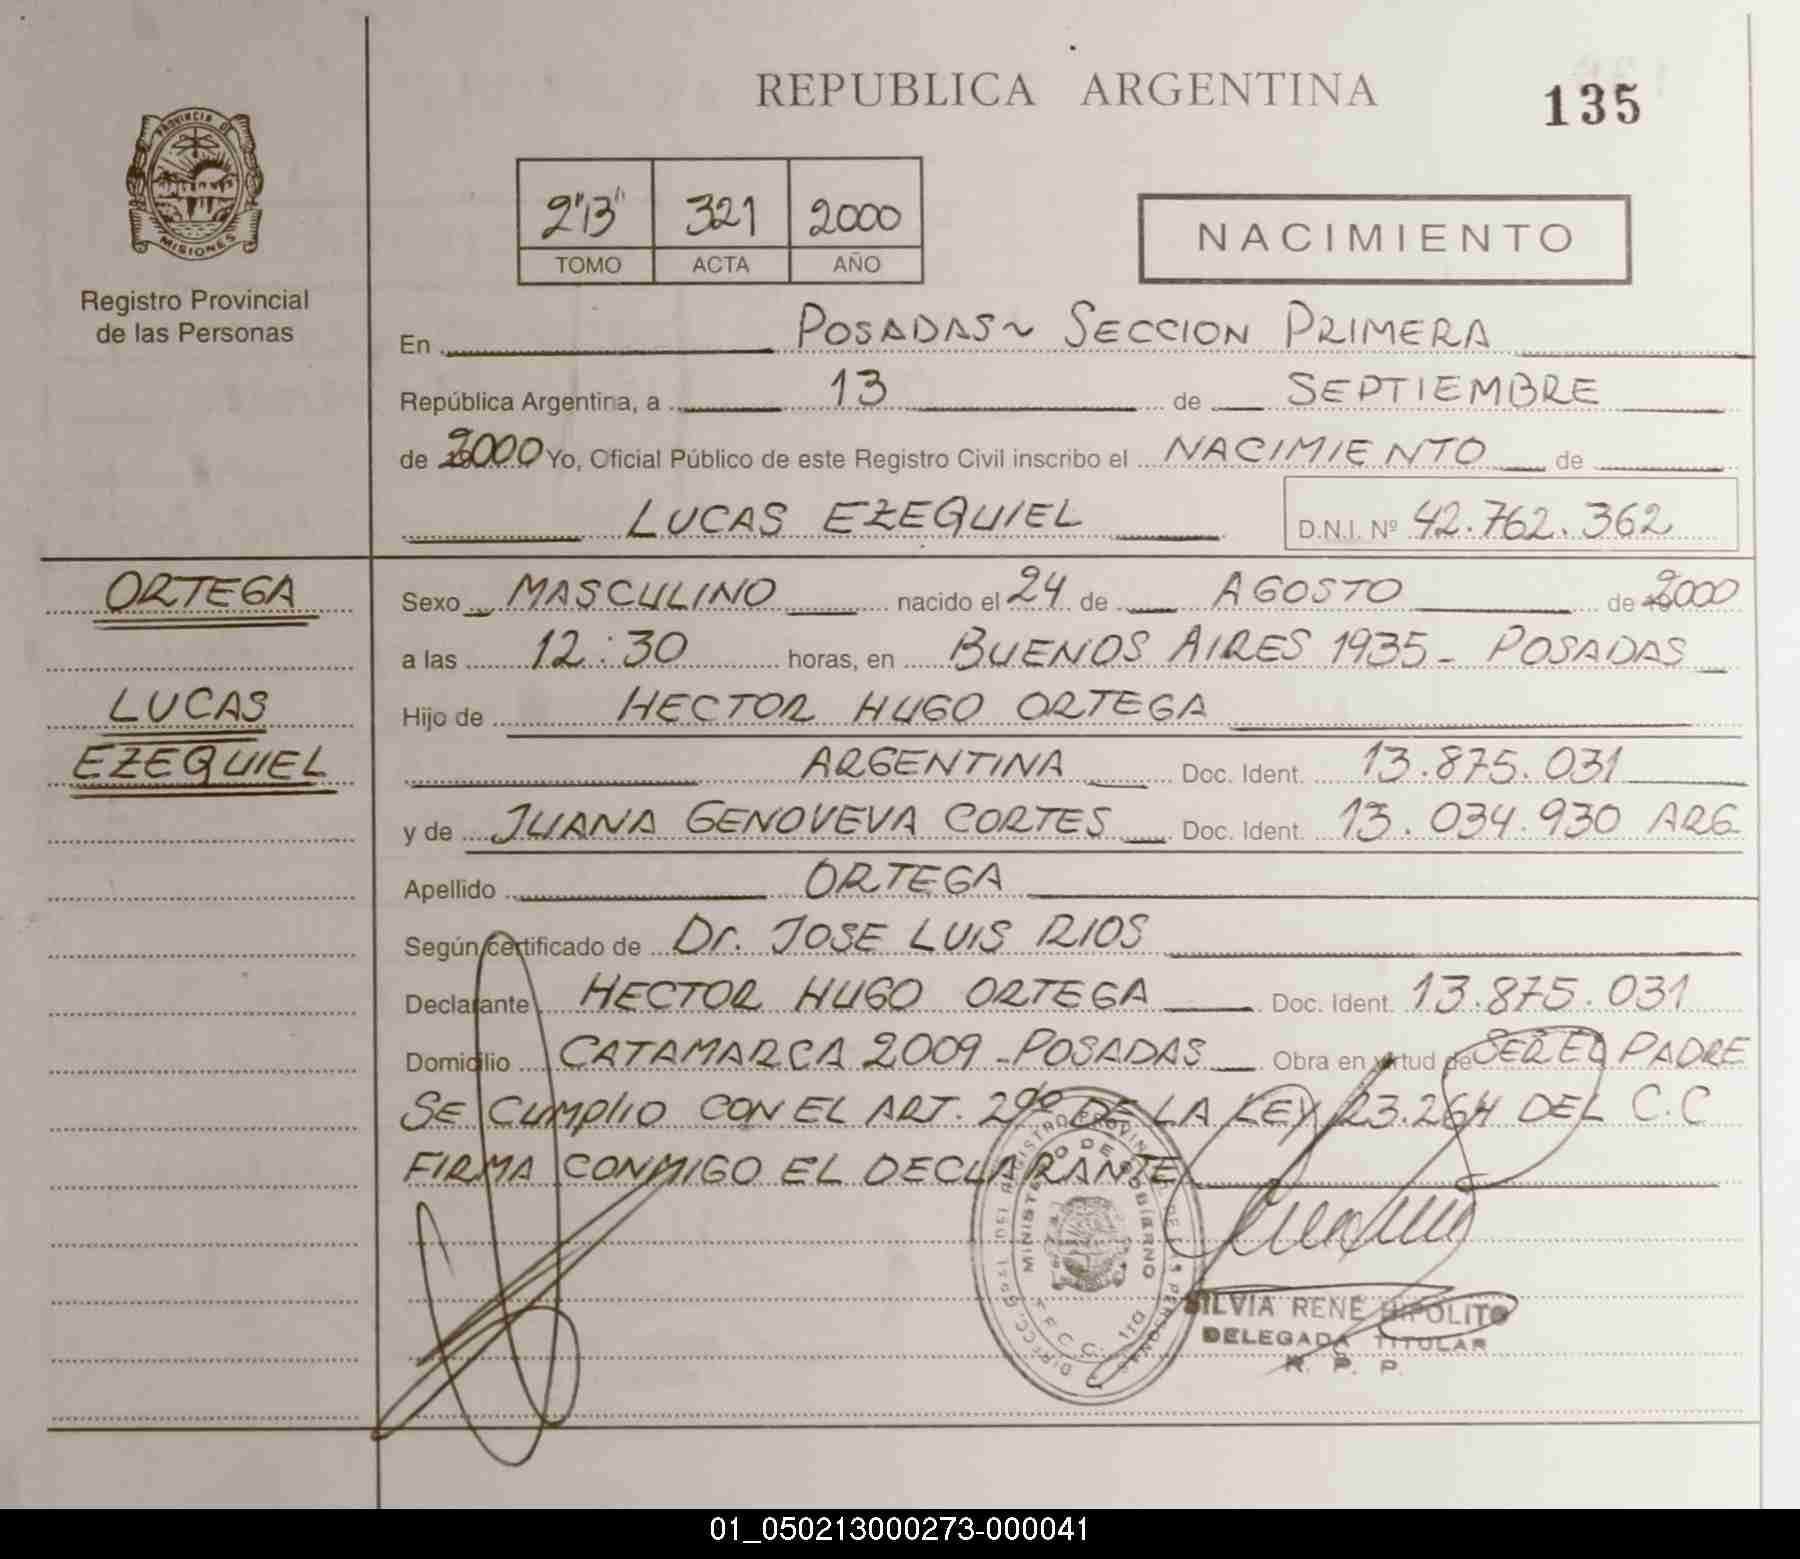 REPUBLICA ARGENTINA
135
PROVINCIA DE
MISIONES
Registro Provincial
de las Personas
2"13" 321 2000
TOMO ACTA AÑO
NACIMIENTO
En POSADAS~ SECCION PRIMERA
República Argentina, a 13 de SEPTIEMBRE
de 2000 Yo, Oficial Público de este Registro Civil inscribo el NACIMIENTO de
LUCAS EZEQUIEL D.N.I. Nº 42.762.362
ORTEGA
LUCAS
EZEQUIEL
Sexo MASCULINO nacido el 24 de AGOSTO de 2000
a las 12:30 horas, en BUENOS AIRES 1935 - POSADAS
Hijo de HECTOR HUGO ORTEGA
ARGENTINA Doc. Ident. 13.875.031
y de JUANA GENOVEVA CORTES Doc. Ident. 13.034.930 ARG
Apellido ORTEGA
Según certificado de Dr. JOSE LUIS RIOS
Declarante HECTOR HUGO ORTEGA Doc. Ident. 13.875.031
Domicilio CATAMARCA 2009 - POSADAS Obra en virtud de SER EL PADRE
SE CUMPLIO CON EL ART. 2º DE LA LEY 23.264 DEL C.C
FIRMA CONMIGO EL DECLARANTE
MINISTERIO DE GOBIERNO
SILVIA RENE HIPOLITO
DELEGADA TITULAR
R. P. P.
01_050213000273-000041